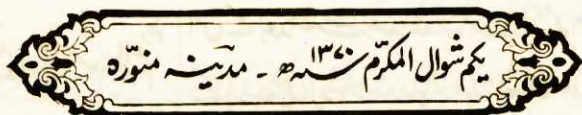 یکم شوال المکرّم ۱۳۷۰ سنہ ھ ۔ مدینہ منوّرہ